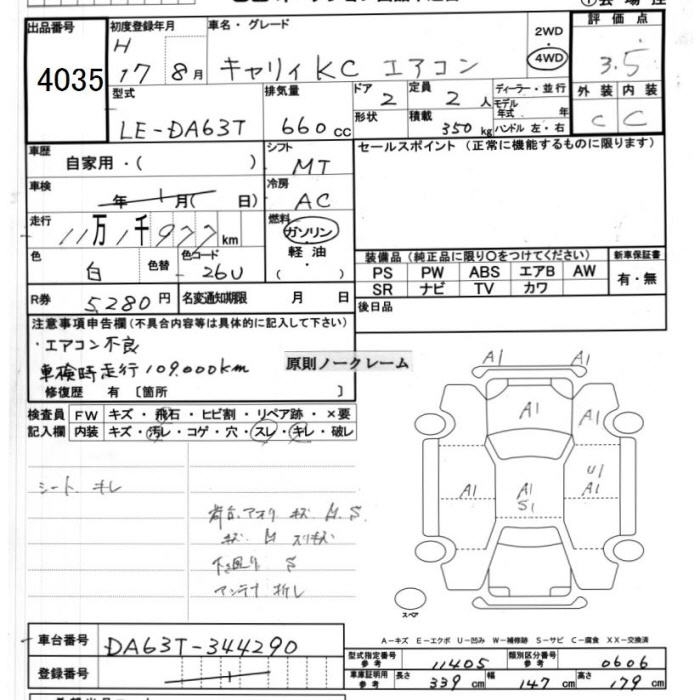 出品番号
4035
初度登録年月
H 17 8月
車名・グレード
キャリィ KC エアコン
2WD
4WD
評価点
3.5
型式
LE-DA63T
排気量
660 cc
ドア
2
定員
2 人
形状
積載
350 kg
ディーラー・並行
モデル年式 年
ハンドル 左・右
外装
C
内装
C
車歴
自家用・( )
シフト
MT
セールスポイント (正常に機能するものに限ります)
車検
年 月( 日)
冷房
AC
走行
11万1千977km
燃料
ガソリン
軽油
( ・ )
色
白
色替
色コード
26U
装備品 (純正品に限り○をつけてください)
新車保証書
PS PW ABS エアB AW
SR ナビ TV カワ
有・無
R券
5,280円
名変通知期限 月 日
後日品
注意事項申告欄(不具合内容等は具体的に記入して下さい)
・エアコン不良
車検時走行109.000km
修復歴 有 〔箇所 〕
原則ノークレーム
検査員
記入欄
FW キズ・飛石・ヒビ割・リペア跡・×要
内装 キズ・汚レ・コゲ・穴・スレ・キレ・破レ
シート キレ
荷台.アオリ キズ H.S.
キズ H スリキズ
下回り S
アンテナ 折レ
A1 A1
A1
U1
A1 A1 A1
S1
スペア
A−キズ E−エクボ U−凹み W−補修跡 S−サビ C−腐食 XX−交換済
車台番号
DA63T-344290
登録番号
型式指定番号
参考
11405
類別区分番号
参考
0606
車庫証明用
参考
長さ
339 cm
幅
147 cm
高さ
179 cm